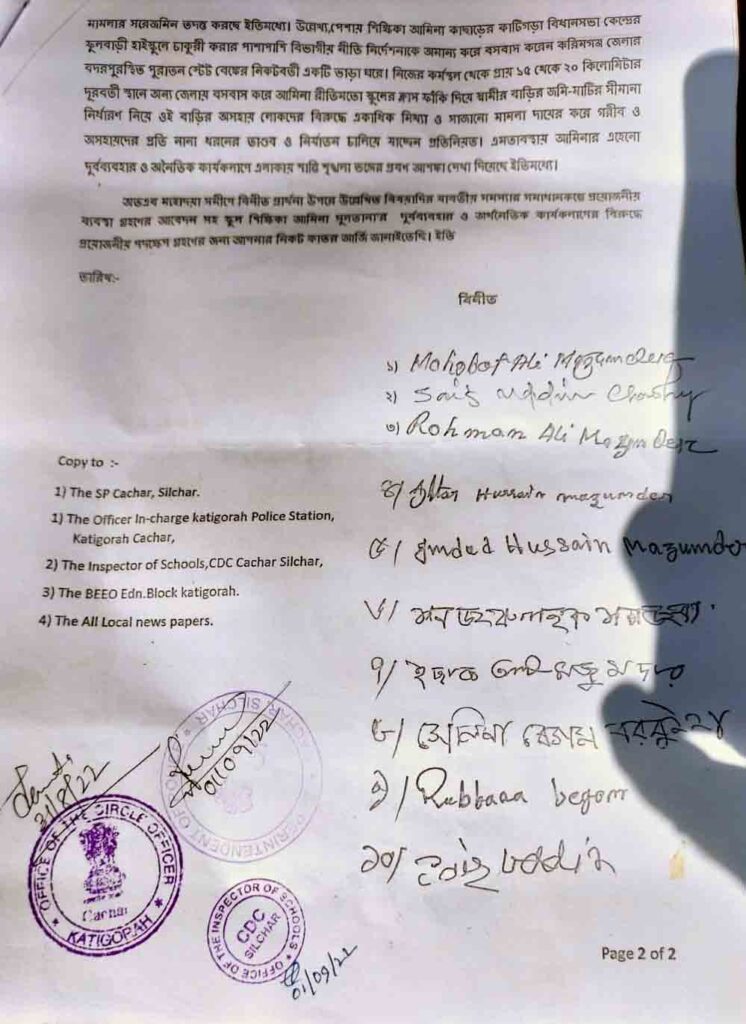 মামলার সরেজমিন তদন্ত করছে ইতিমধ্যে। উল্লেখ্য,পেশায় শিক্ষিকা আমিনা কাছাড়ের কাটিগড়া বিধানসভা কেন্দ্রের
ফুলবাড়ী হাইস্কুলে চাকুরী করার পাশাপাশি বিভাগীয় নীতি নির্দেশনাকে অমান্য করে বসবাস করেন করিমগঞ্জ জেলার
বদরপুরস্থিত পুরাতন স্টেট বেঙ্কের নিকটবর্তী একটি ভাড়া ঘরে। নিজের কর্মস্থল থেকে প্রায় ১৫ থেকে ২০ কিলোমিটার
দূরবর্তী স্থানে অন্য জেলায় বসবাস করে আমিনা রীতিমতো স্কুলের ক্লাস ফাঁকি দিয়ে স্বামীর বাড়ির জমি-মাটির সীমানা
নির্ধারণ নিয়ে ওই বাড়ির অসহায় লোকদের বিরুদ্ধে একাধিক মিথ্যা ও সাজানো মামলা দায়ের করে গরীব ও
অসহায়দের প্রতি নানা ধরনের তাণ্ডব ও নির্যাতন চালিয়ে যাচ্ছেন প্রতিনিয়ত। এমতাবস্থায় আমিনার এহেনো
দূর্ব্যবহার ও অনৈতিক কার্যকলাপে এলাকায় শান্তি শৃঙ্খলা ভঙ্গের প্রবণ আশঙ্কা দেখা দিয়েছে ইতিমধ্যে।
অতএব মহোদয়া সমীপে বিনীত প্রার্থনা উপরে উল্লেখিত বিষয়াদির যাবতীয় সমস্যার সমাধানকল্পে প্রয়োজনীয়
ব্যবস্থা গ্রহণের আবেদন সহ স্কুল শিক্ষিকা আমিনা খুলতানা'র দূর্ব্যবহার ও অনৈতিক কার্যকলাপের বিরুদ্ধে
প্রয়োজনীয় পদক্ষেপ গ্রহণের জন্য আপনার নিকট কাতর আর্জি জানাইতেছি। ইতি
তারিখ:-
বিনীত
১) Mohobot Ali Mazumder
২) Uddin
৩) Rohman Ali Mazumder
৪/ Hussain mazumder
৫/ Emded Hussain Mazumder
৬/
৭/ আলী মজুমদার
৮/ বেগম
৯/ begom
১০/ Uddin
Copy to :-
1) The SP Cachar, Silchar.
1) The Officer In-charge katigorah Police Station,
Katigorah Cachar,
2) The Inspector of Schools,CDC Cachar Silchar,
3) The BEEO Edn.Block katigorah.
4) The All Local news papers.
31/8/22
01/09/22
OFFICE OF THE CIRCLE OFFICER
Cachar
KATIGORAH
OFFICE OF THE INSPECTOR OF SCHOOLS
CDC
SILCHAR
01/09/22
Page 2 of 2